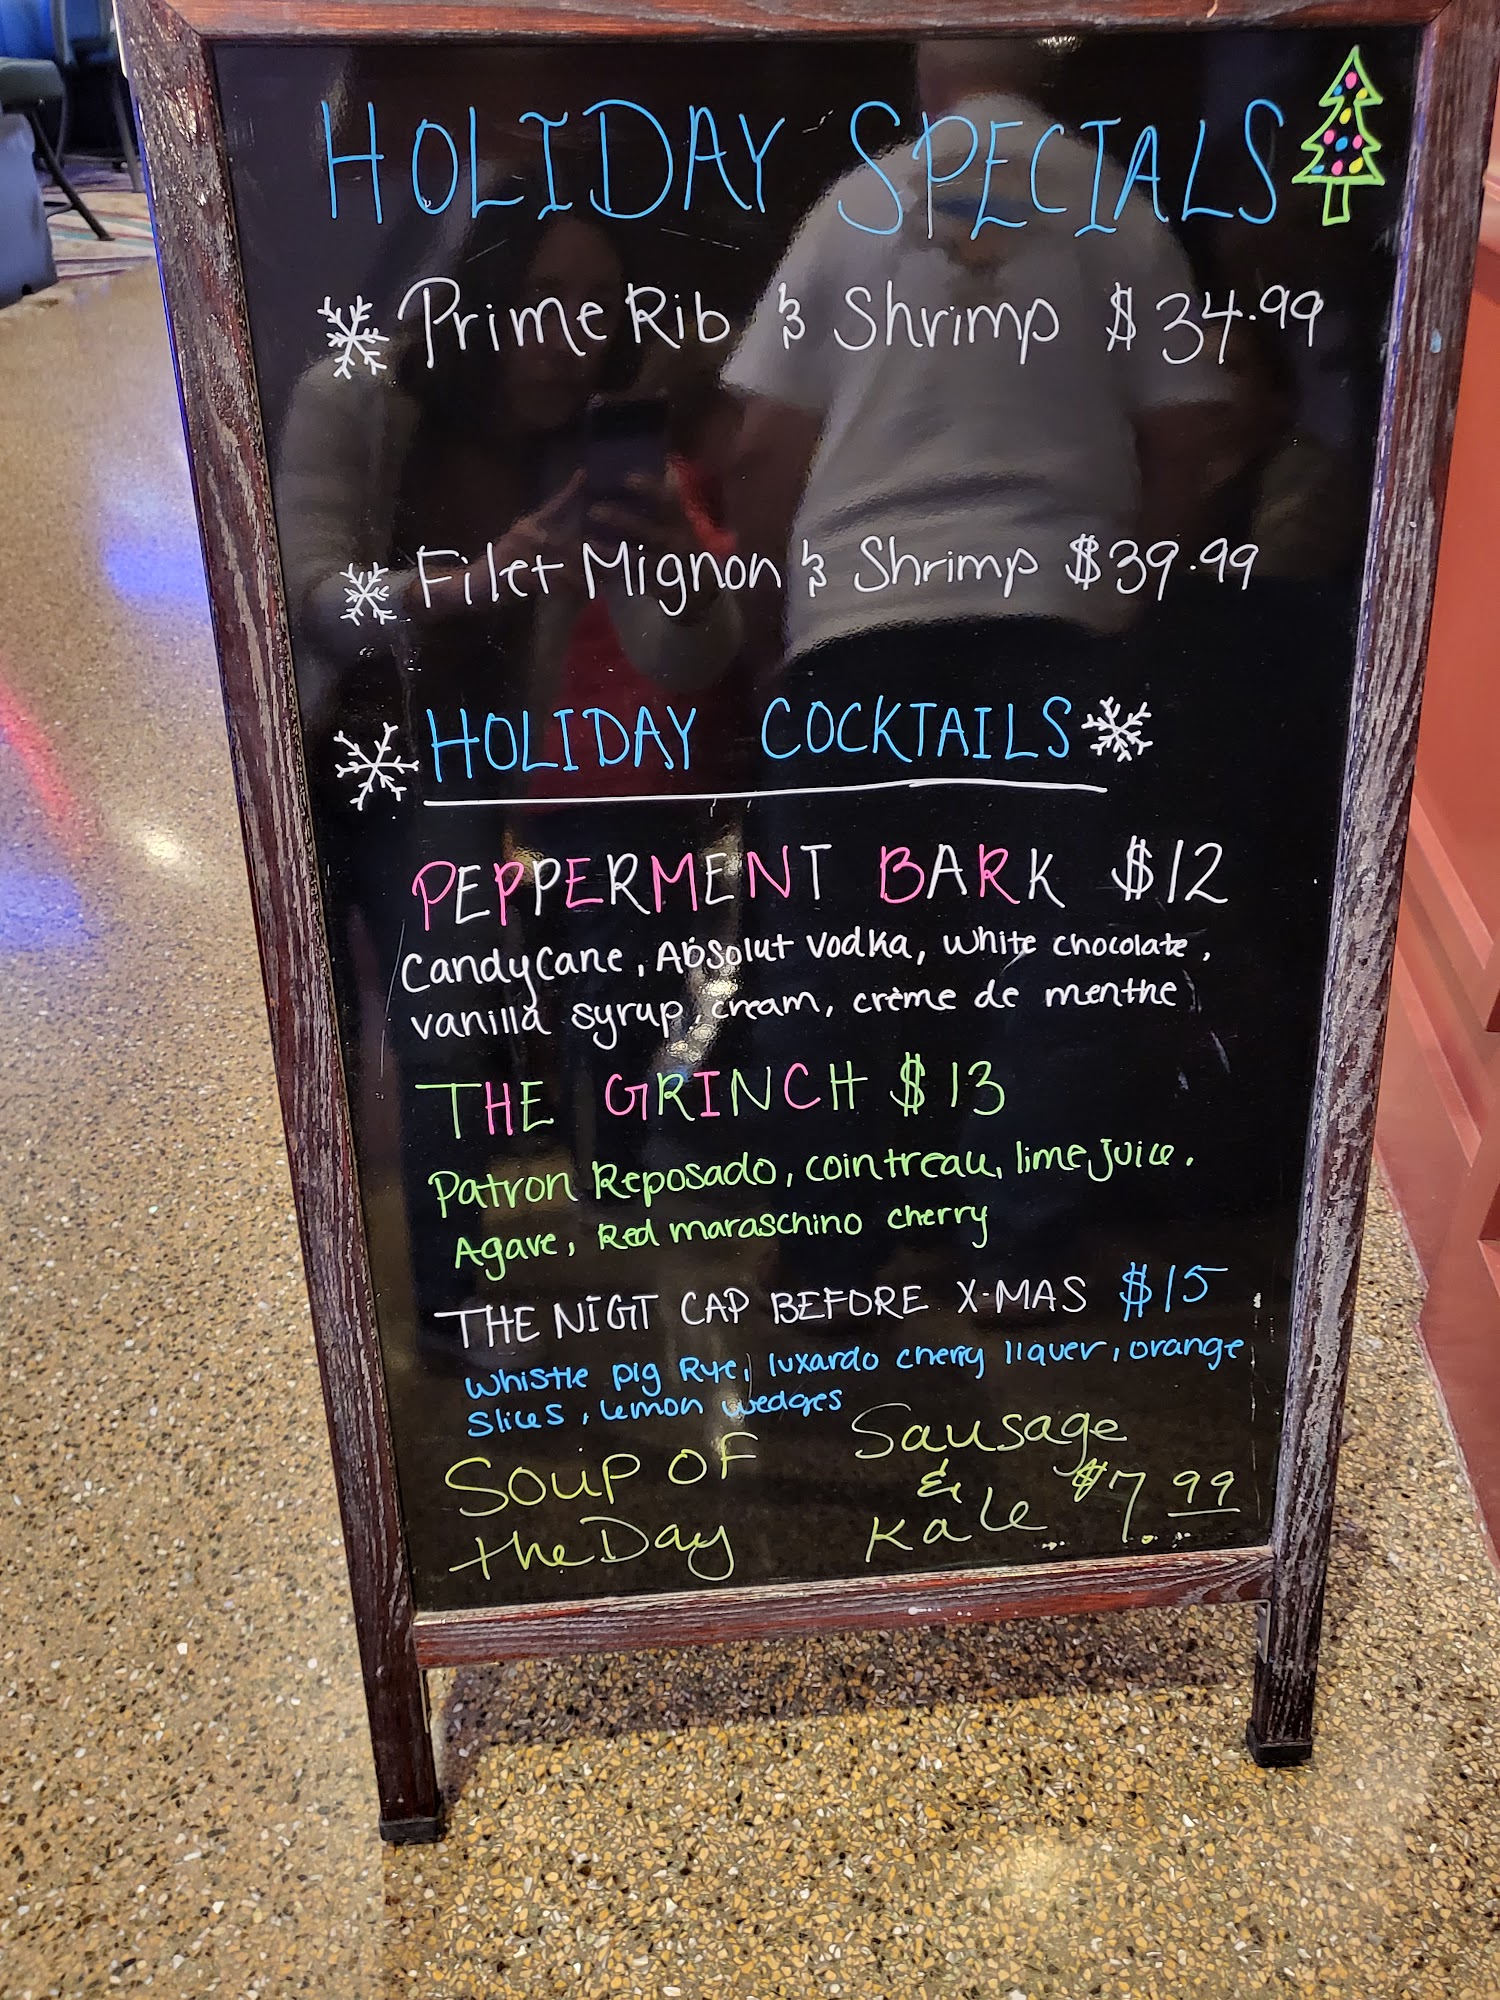 HOLIDAY SPECIALS
Prime Rib & Shrimp $34.99
Filet Mignon & Shrimp $39.99
HOLIDAY COCKTAILS
PEPPERMENT BARK $12
Candy Cane, Absolut Vodka, white chocolate,
vanilla syrup, cream, crème de menthe
THE GRINCH $13
Patron Reposado, cointreau, lime juice,
Agave, Red maraschino cherry
THE NIGT CAP BEFORE X-MAS $15
whistle pig Rye, luxardo cherry liquer, orange
slices, lemon wedges
Soup of Sausage
the Day & Kale $7.99